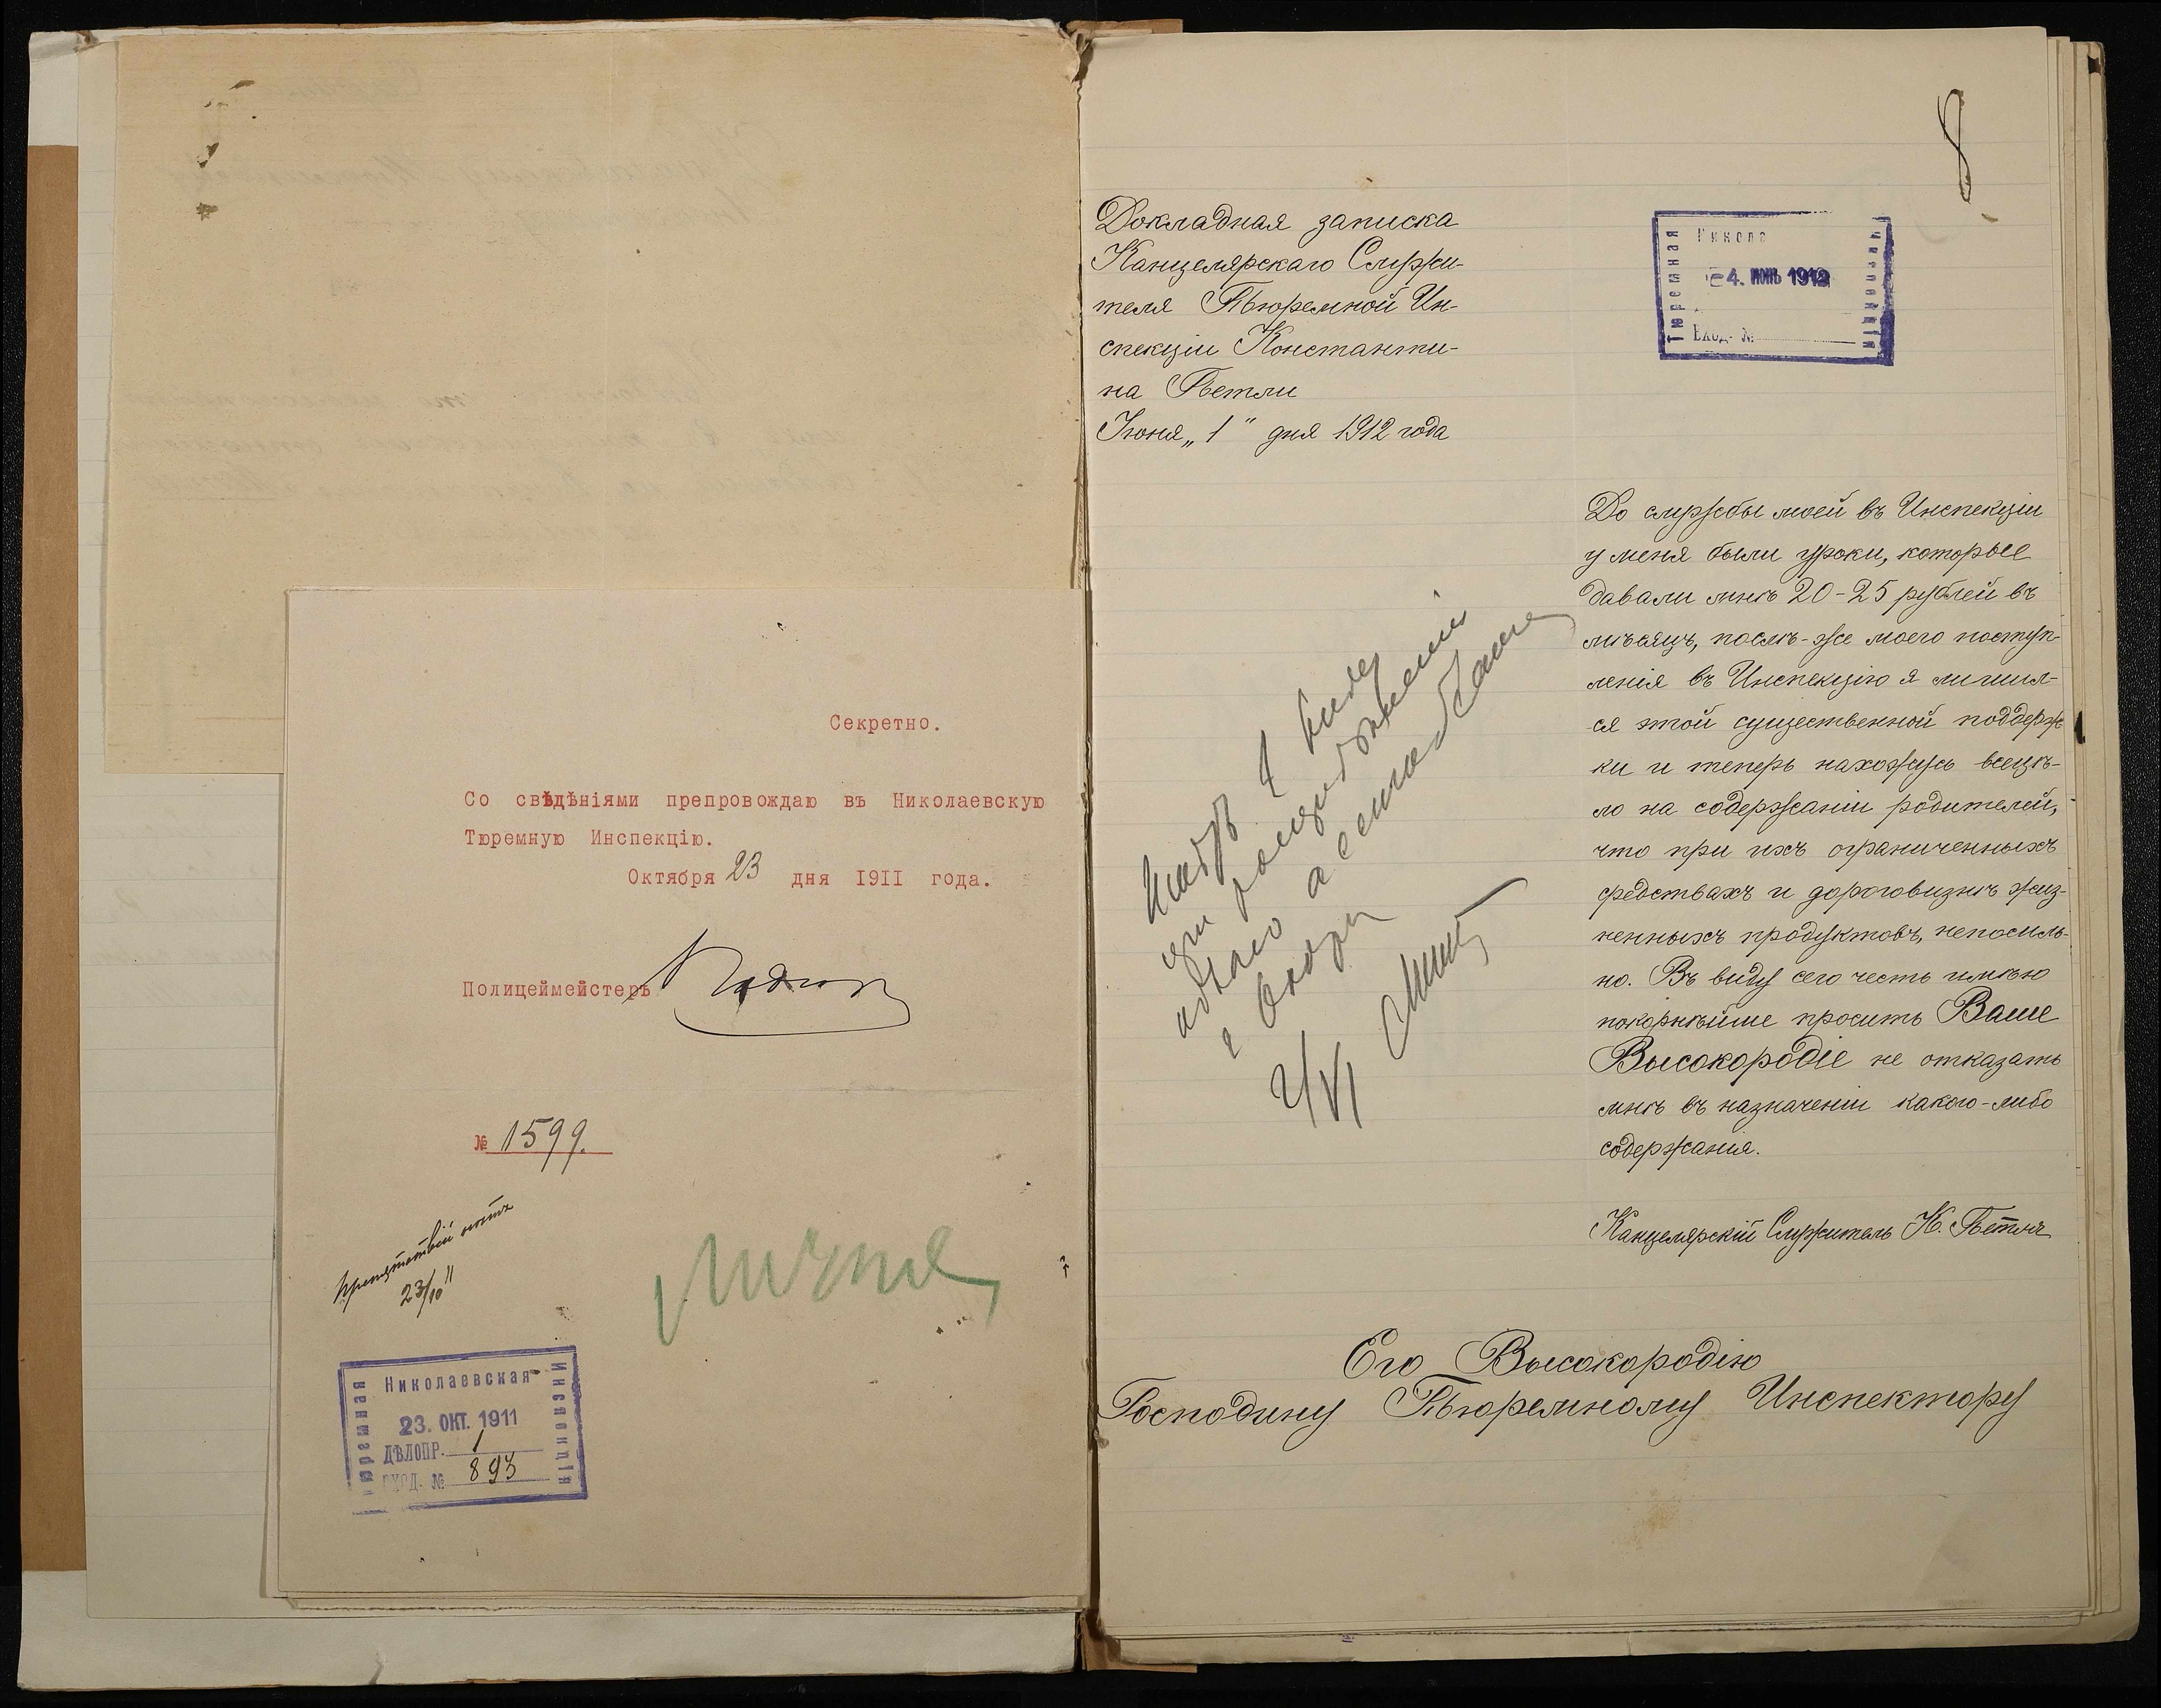 Секретно.
Со свѣдѣніями препровождаю въ Николаевскую
Тюремную Инспекцію.
Октября 23 дня 1911 года.
Полицеймейстеръ
№ 1599.
23/10 11
Николаевская
Тюремная
Инспекція
23. ОКТ. 1911
ДѢЛОПР. 1
ВХОД. № 893
8
Докладная записка
Канцелярскаго Служи-
теля Тюремной Ин-
спекціи Константи-
на Петли
Іюня „1" дня 1912 года
Тюремная
Никола
Инспекція
4. ІЮНЬ 1912
Вход. №
До службы моей въ Инспекціи
у меня были уроки, которые
давали мнѣ 20-25 рублей въ
мѣсяцъ, послѣ-же моего поступ-
ленія въ Инспекцію я лишил-
ся этой существенной поддерж
ки и теперь нахожусь всецѣ-
ло на содержаніи родителей,
что при ихъ ограниченныхъ
средствахъ и дороговизнѣ жиз-
ненныхъ продуктовъ, непосиль-
но. Въ виду сего честь имѣю
покорнѣйше просить Ваше
Высокородіе не отказать
мнѣ въ назначеніи какого-либо
содержанія.
Канцелярскій Служитель К. Петля
Его Высокородію
Господину Тюремному Инспектору